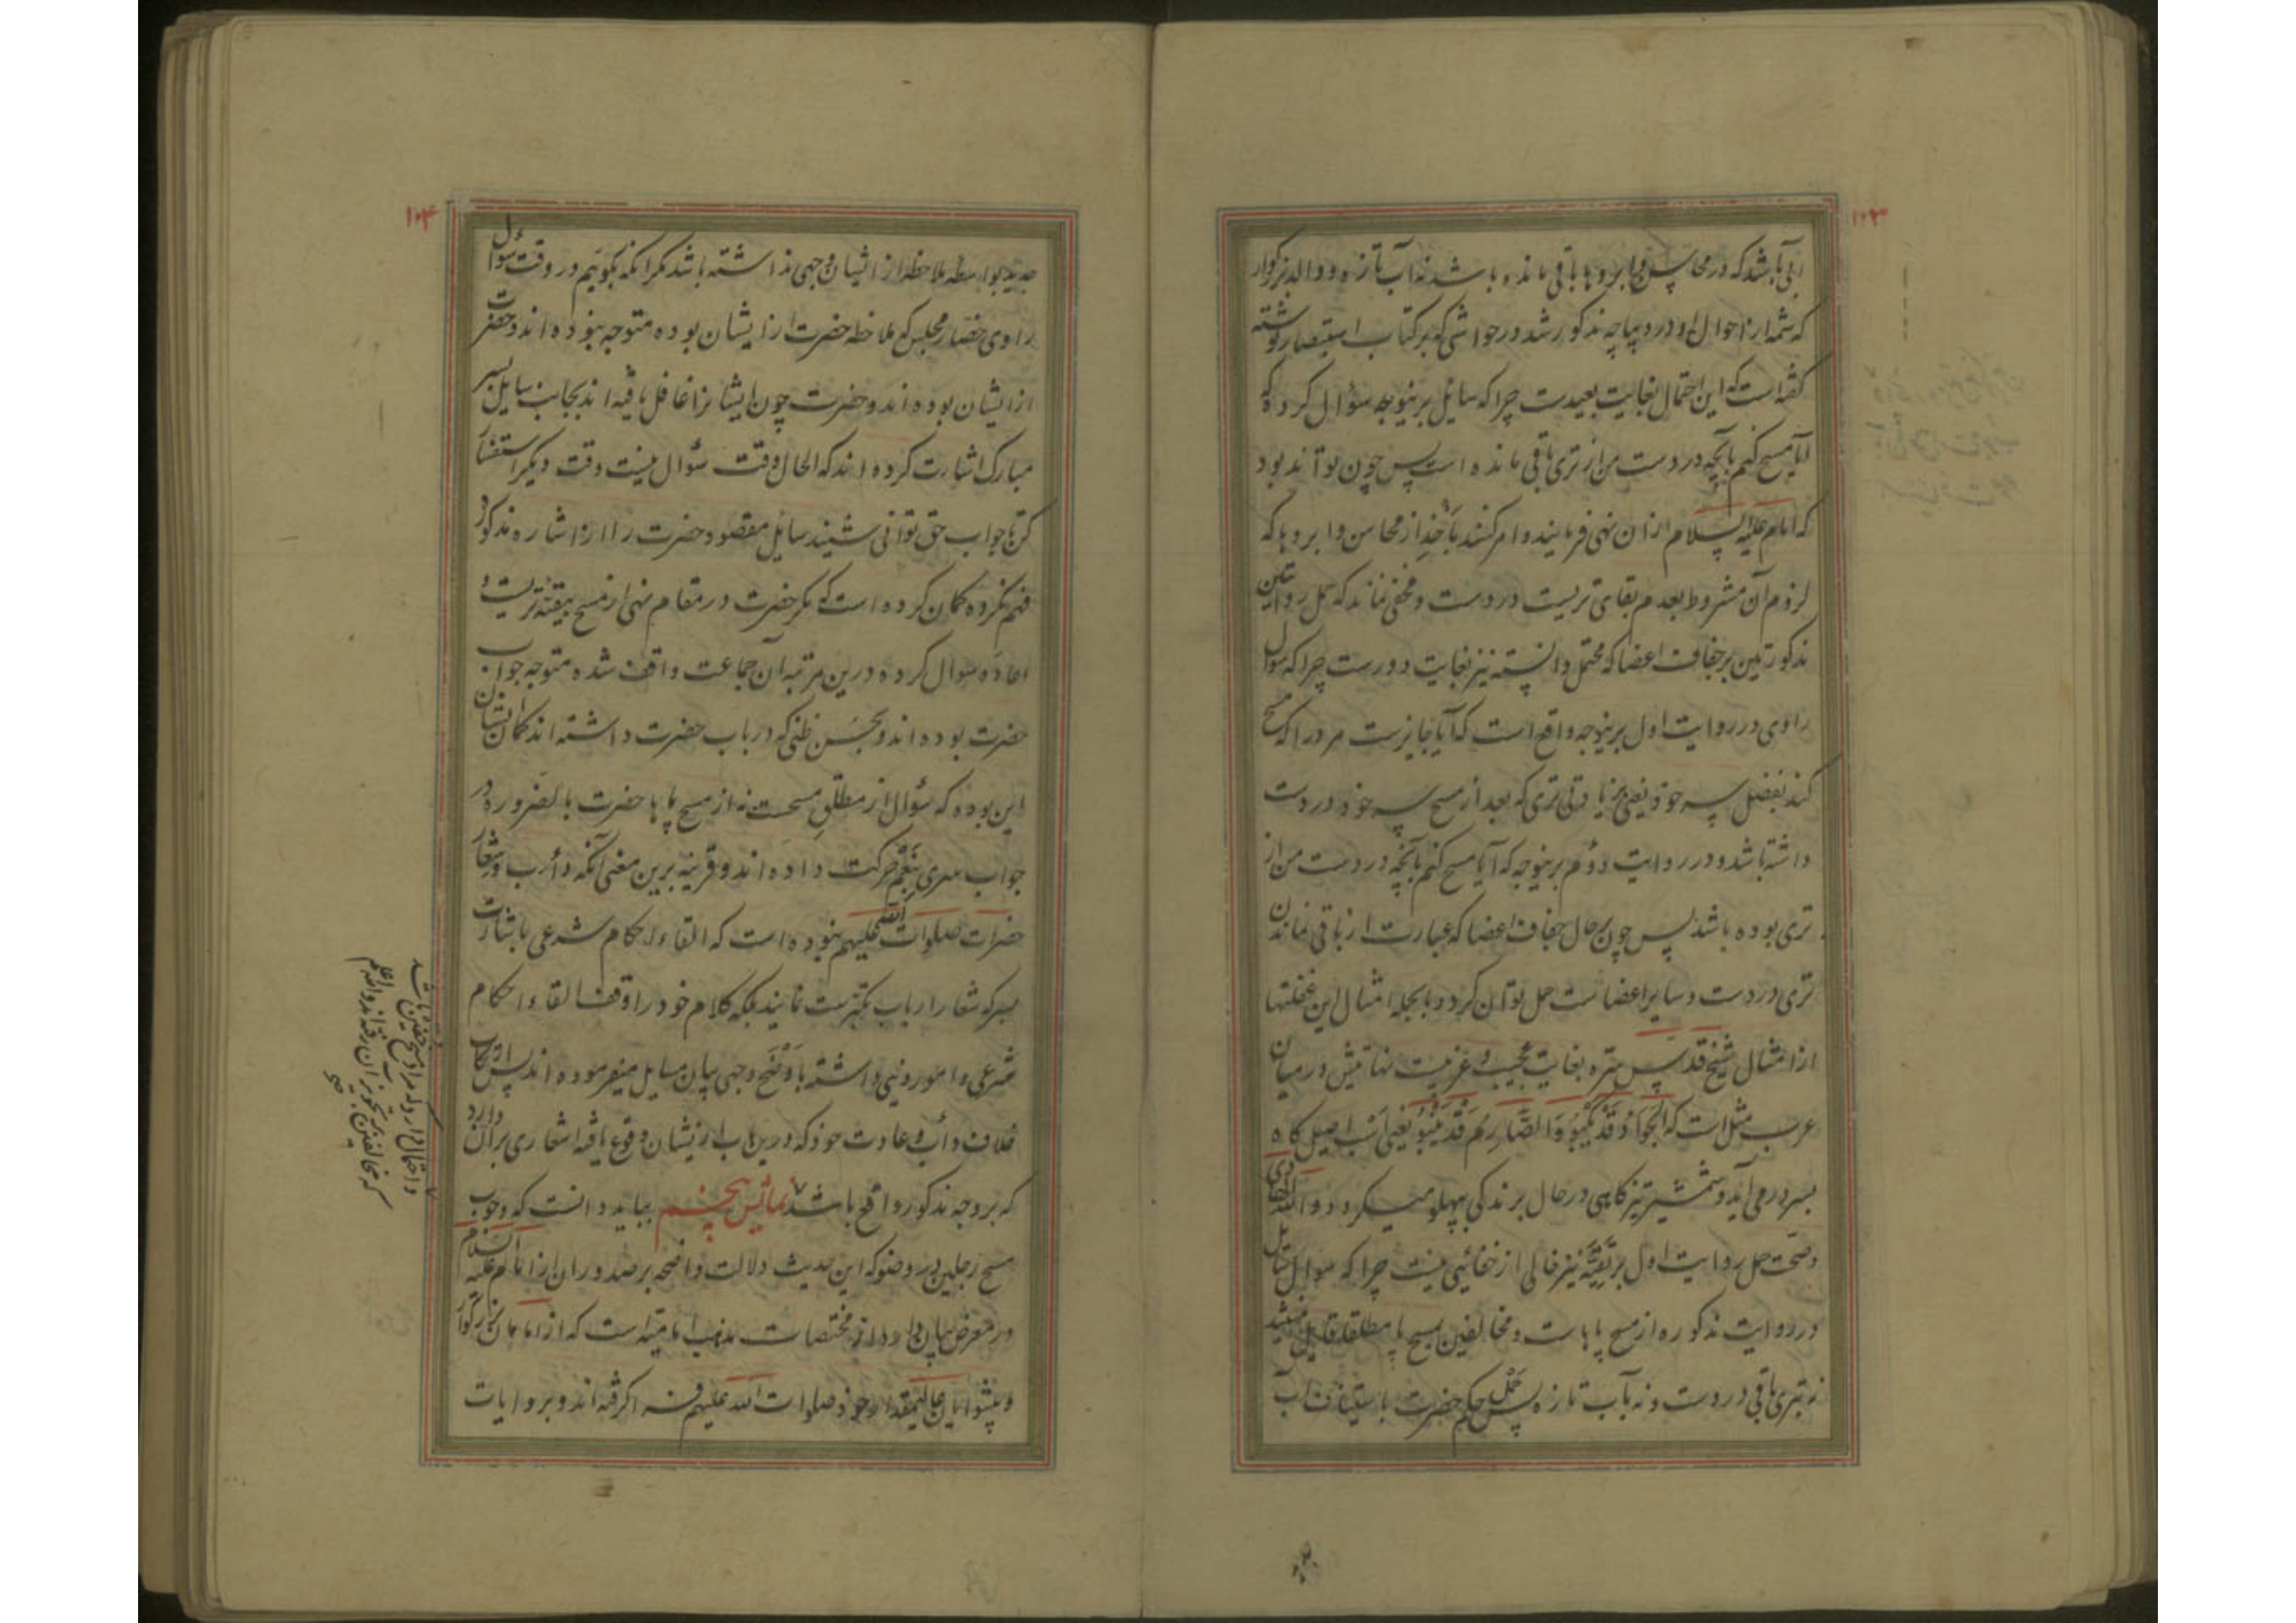 ۱۰۳
آبی باشد که در محاسن و ابروها باقی مانده باشد نه آب تازه و والد بزرگوار
که شمه از احوال او در دیباچه مذکور شد در حواشی که بر کتاب استبصار نوشته
گفته است که این احتمال بغایت بعیدست چرا که سایل برینوجه سؤال کرده که
آیا مسح کنم بآنچه در دست من از تری باقی مانده است پس چون تواند بود
که امام علیه السلام از آن نهی فرمایند و امر کنند بأخذ از محاسن و ابروها که
لزوم آن مشروط بعدم بقای تریست در دست و مخفی نماند که حمل روایتین
مذکورتین بر جفاف اعضا که محتمل دانسته نیز بغایت دورست چرا که سؤال
راوی در روایت اول برینوجه واقع است که آیا جایزست مرد را که مسح
کند بفضل سر خود یعنی بزیادتی تری که بعد از مسح سر خود در دست
داشته باشد و در روایت دوم برینوجه که آیا مسح کنم بآنچه در دست من از
تری بوده باشد پس چون بر حال جفاف اعضا که عبارت از باقی نماندن
تری در دست و سایر اعضاست حمل توان کرد و بالجمله امثال این غفلتها
از امثال شیخ قدس سره بغایت عجیب و غریبست نهایتش در میان
عرب مثل است که الجَوادُ قَدْ یَکْبُو وَالصَّارِمُ قَدْ یَنْبُو یعنی اسب اصیل گاه
بسر در می آید و شمشیر تیز گاهی در حال برندگی بپهلو میگردد و الله الهادی
و صحت حمل روایت اول بر تقیّه نیز خالی از خفائی نیست چرا که سؤال سایل
در روایت مذکوره از مسح پاهاست و مخالفین بمسح پا مطلقا قایل نیستند
نه بتری باقی در دست و نه بآب تازه پس حَمْل حکم حضرت باستیناف آب
۱۰۴
جدید بواسطه ملاحظه از ایشان وجهی نداشته باشد مگر آنکه بگوییم در وقت سؤال
راوی حضار مجلس که ملاحظه حضرت از ایشان بوده متوجه نبوده اند و حضرت
از ایشان بوده اند و حضرت چون ایشانرا غافل یافته اند بجانب سایل بسر
مبارک اشارت کرده اند که الحال وقت سؤال نیست وقت دیگر استفسار
کن تا جواب حق توانی شنید سایل مقصود حضرت را از اشاره مذکور
فهم نکرده گمان کرده است که مگر حضرت در مقام نهی از مسح ببقیّه تریست و
اعاده سؤال کرده درین مرتبه آن جماعت واقف شده متوجه جواب
حضرت بوده اند و بحسن ظنی که در باب حضرت داشته اند گمان ایشان
این بوده که سؤال از مطلق مسحست نه از مسح پاها حضرت بالضروره در
جواب سری بنعم حرکت داده اند و قرینه برین معنی آنکه دأب و شعار
حضرات صلوات الله علیهم نبوده است که القاء احکام شرعی باشارت
سر که شعار ارباب تکبّرست نمایند بلکه کلام خود را وقف القاء احکام
شرعی و امور دینی داشته باوضح وجهی بیان مسایل میفرموده اند پس ارتکاب
خلاف دأب و عادت خود که درین باب از یشان وقوع یافته اشعاری بر آن دارد
که بر وجه مذکور واقع باشد نمایش پنجم بباید دانست که وجوب
مسح رجلین در وضو که این حدیث دلالت واضحه بر صدور آن از امام علیه السلام
در معرض بیان دارد از مختصات مذهب امامیّه است که از امامان بزرگوار
و پیشوایان عالیمقدار خود صلوات الله علیهم فرا گرفته اند و بروایات
و احتمال دارد که مراد مسح خفین باشد
که مخالفین بتجویز آن رفته اند والله اعلم